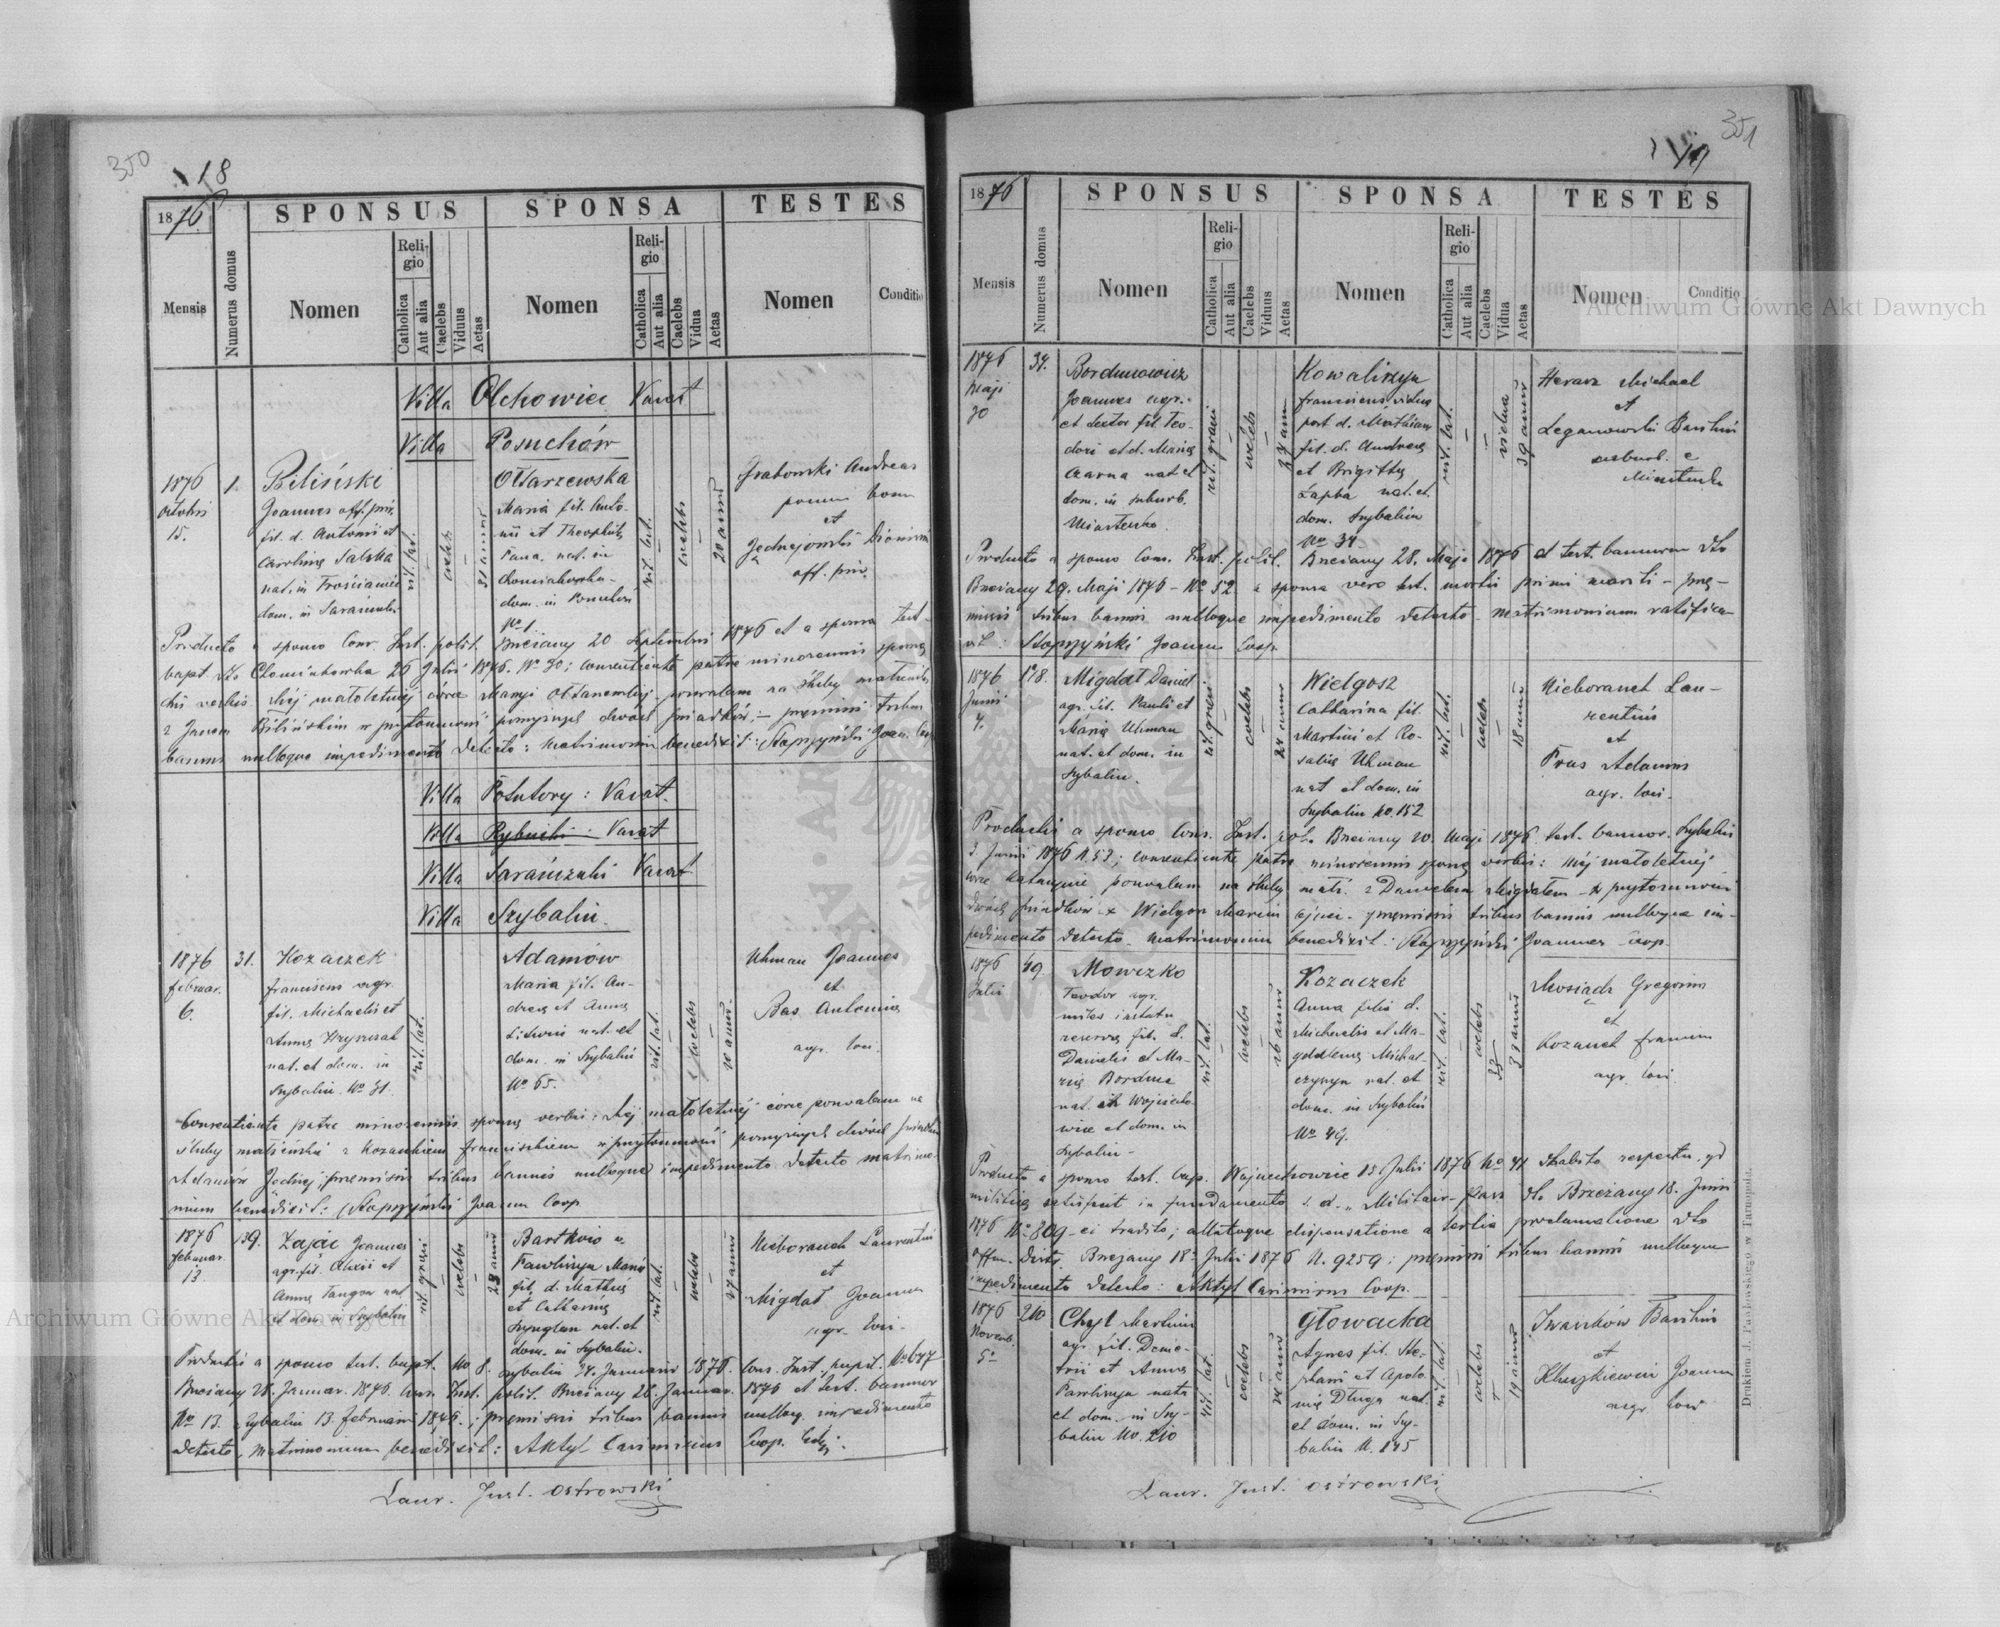 350
18
1876
SPONSUS
SPONSA
TESTES
Mensis
Numerus domus
Nomen
Religio
Catholica
Aut alia
Caelebs
Viduus
Aetas
Nomen
Religio
Catholica
Aut alia
Caelebs
Vidua
Aetas
Nomen
Conditio
Villa Olchowiec Vacat
Villa Posuchów
1876
Octobri
15.
1.
Biliński
Joannes off. priv.
fil. d. Antonii et
Carolina
nat. in
dom. in
rit. lat.
caelebs
31 annor
Ottarzewska
Maria fil. Anto-
nii et Theophila
nat. in
dom. in
No 1.
rit. lat.
caelebs
20 annor
Grabowski Andreas
et
off. priv.
Producto a sponso Cons. Inst. polit. Brzeżany 20 Septembris 1876 et a sponsa test.
bapt. dto 26 Julii 1876. No 30; consentiente patre minorennis sponsæ
z Janem Bilińskim w przytomności dwóch świadków; præmissis tribus
bannis nulloque impedimento detecto: matrimonium benedixit: Stopczyński Joan.
Villa Potutory: Vacat.
Villa Rybniki: Vacat
Villa Sarańczuki Vacat
Villa Szybalin.
1876
Februar.
6.
31.
Kozaczek
Franciscus agr.
fil. Michaelis et
Anna
nat. et dom. in
Szybalin No 31.
rit. lat.
Adamów
Maria fil. An-
dreæ et Anna
nat. et
dom. in Szybalin
No 65.
rit. lat.
caelebs
20 annor
Uhman Joannes
et
Bas Antonius
agr. loci.
Consentiente patre minorennis sponsæ verbis: Mej małoletniej córce pozwalam na
śluby małżeńskie z Kozaczkiem Franciszkiem w przytomności dwóch
præmissis tribus bannis nulloque impedimento detecto matrimo-
nium benedixit: Stopczyński Joannes Coop.
1876
Februar.
13.
139.
Zając Joannes
agr. fil. Alexii et
Anna nat
et dom. in Szybalin
rit. græci
caelebs
28 annor
Bartkowa
Pawliszyn Maria
fil. d. Mathiæ
et Catharina
nat. et
dom. in Szybalin.
rit. lat.
caelebs
27 annor
Nieboranek Laurentius
et
Migdał Joannes
agr. loci.
Productis a sponso test. bapt. No 8. Szybalin 24. Januarii 1876. Cons. Inst. pupil. No 647
Brzeżany 28. Januar. 1876. Cons. Inst. polit. Brzeżany 28. Januar. 1876 et test. bannor
No 13. Szybalin 13. Februarii 1876.; præmissis tribus bannis nulloq. impedimento
detecto, matrimonium benedixit: Aktyl Casimirus Coop.
Laur. Just. Ostrowski
351
19
1876
SPONSUS
SPONSA
TESTES
Mensis
Numerus domus
Nomen
Religio
Catholica
Aut alia
Caelebs
Viduus
Aetas
Nomen
Religio
Catholica
Aut alia
Caelebs
Vidua
Aetas
Nomen
Conditio
1876
Maji
30
34.
Bordunowicz
Joannes agr.
et textor fil. Teo-
dori et d. Maria
Czarna nat. et
dom. in suburb.
Miasteczko.
rit. græci
caelebs
Kowaliszyn
Francisca vidua
post d. Mathiam
fil. d. Andreæ
et Brigitta
Łapka nat. et
dom. Szybalin
No 34
rit. lat.
vidua
39 annor
Heraz Michael
et
Leganowski Basilius
suburb. e
Miasteczko
Producto a sponso Cons. Inst. polit. Brzeżany 28. Maji 1876 et test. bannorum dto
Brzeżany 29. Maji 1876 – No 52. a sponsa vero test. mortis primi mariti – præ-
missis tribus bannis nulloque impedimento detecto. matrimonium ratifica-
vit: Stopczyński Joannes Coop.
1876
Junii
7.
178.
Migdał Daniel
agr. fil. Pauli et
Maria Uhman
nat. et dom. in
Szybalin.
rit. græci
caelebs
24 annor
Wielgosz
Catharina fil.
Martini et Ro-
salia Uhman
nat et dom. in
Szybalin No. 152
rit. lat.
caelebs
18 annor
Nieboranek Lau-
rentius
et
Prus Adamus
agr. loci.
Productis a sponso Cons. Inst. pol. Brzeżany 20. Maji 1876. test. bannor. Szybalin
3. Junii 1876 N. 53; consentiente patre minorennis sponsæ verbis: Mej małoletniej
córce Katarzynie pozwalam na śluby małż. z Danielem Migdałem – w przytomności
dwóch świadków. x Wielgosz Marcin ojciec – præmissis tribus bannis nulloque im-
pedimento detecto. matrimonium benedixit: Stopczyński Joannes Coop.
1876
Julii
49.
Mowczko
Teodor agr.
miles in statu
reservæ fil. d.
Danielis et Ma-
ria Bordun
nat. in Wojciecho-
wice et dom. in
Szybalin.
rit. lat.
caelebs
26 annor
Kozaczek
Anna filia d.
Michaelis et Ma-
gdalena Michal-
czyszyn nat. et
dom. in Szybalin
No 49.
rit. lat.
caelebs
Mosiądz Gregorius
et
Kozaneck
agr. loci.
Producto a sponso test. Cap. Wojciechowice 15 Julii 1876 No 41 habito respectu, qd
militiæ satisfecit in fundamento s. d. „Militär-Pass dto Brzeżany 18. Junii
1876 No 809 – ei tradito; allatoque dispensatione a tertia proclamatione dto
Brzeżany 18. Julii 1876 N. 9259; præmissis tribus bannis nulloque
impedimento detecto: Aktyl Casimirus Coop.
1876
Novemb.
5
210
Chyl Martinus
agr. fil. Deme-
trii et Anna
Pawliszyn nat.
et dom. in Szy-
balin No. 210
rit. lat.
caelebs
24 annor
Głowacka
Agnes fil. Ste-
phani et Apolo-
nia Długa nat.
et dom. in Szy-
balin N. 145
rit. lat.
caelebs
19 annor
Iwasków Basilius
et
Kluszkiewicz Joannes
agr. loci
Laur. Just. Ostrowski
Drukiem J. Pawłowskiego w Tarnopolu.
Archiwum Główne Akt Dawnych
Archiwum Główne Akt Dawnych